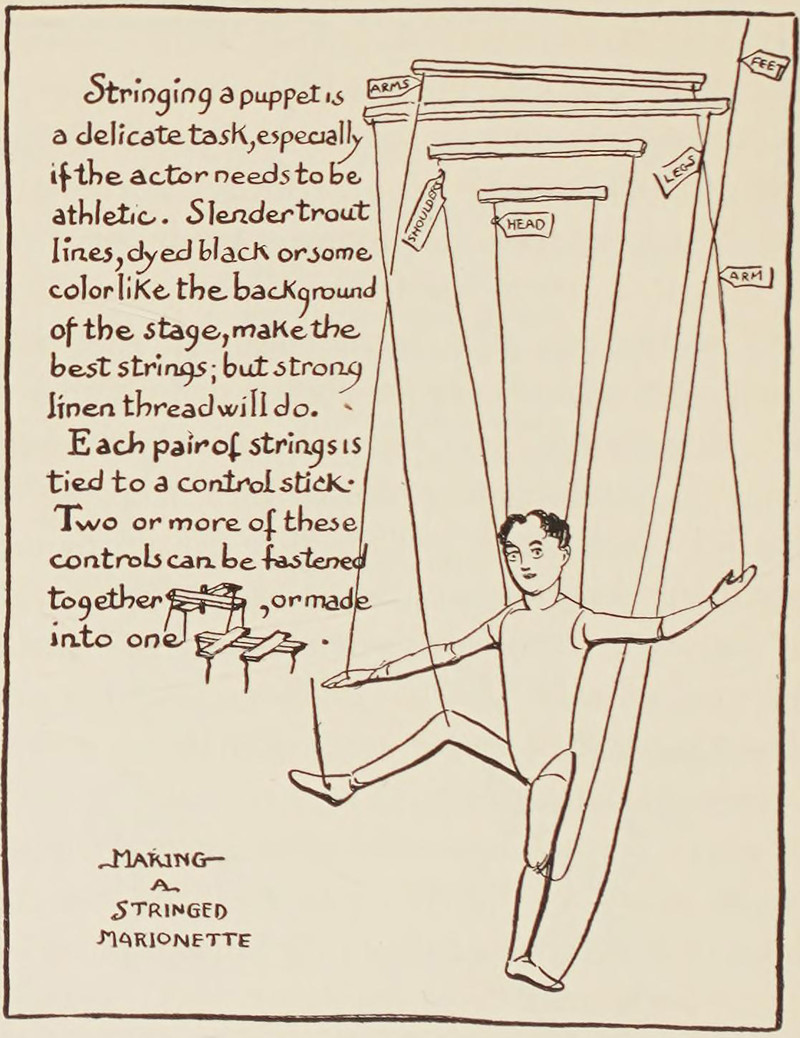 Stringing a puppet is
a delicate task, especially
if the actor needs to be
athletic. Slender trout
lines, dyed black or some
color like the background
of the stage, make the
best strings; but strong
linen thread will do.
Each pair of strings is
tied to a control stick.
Two or more of these
controls can be fastened
together , or made
into one .
ARMS
FEET
SHOULDERS
HEAD
LEGS
ARM
MAKING
A
STRINGED
MARIONETTE